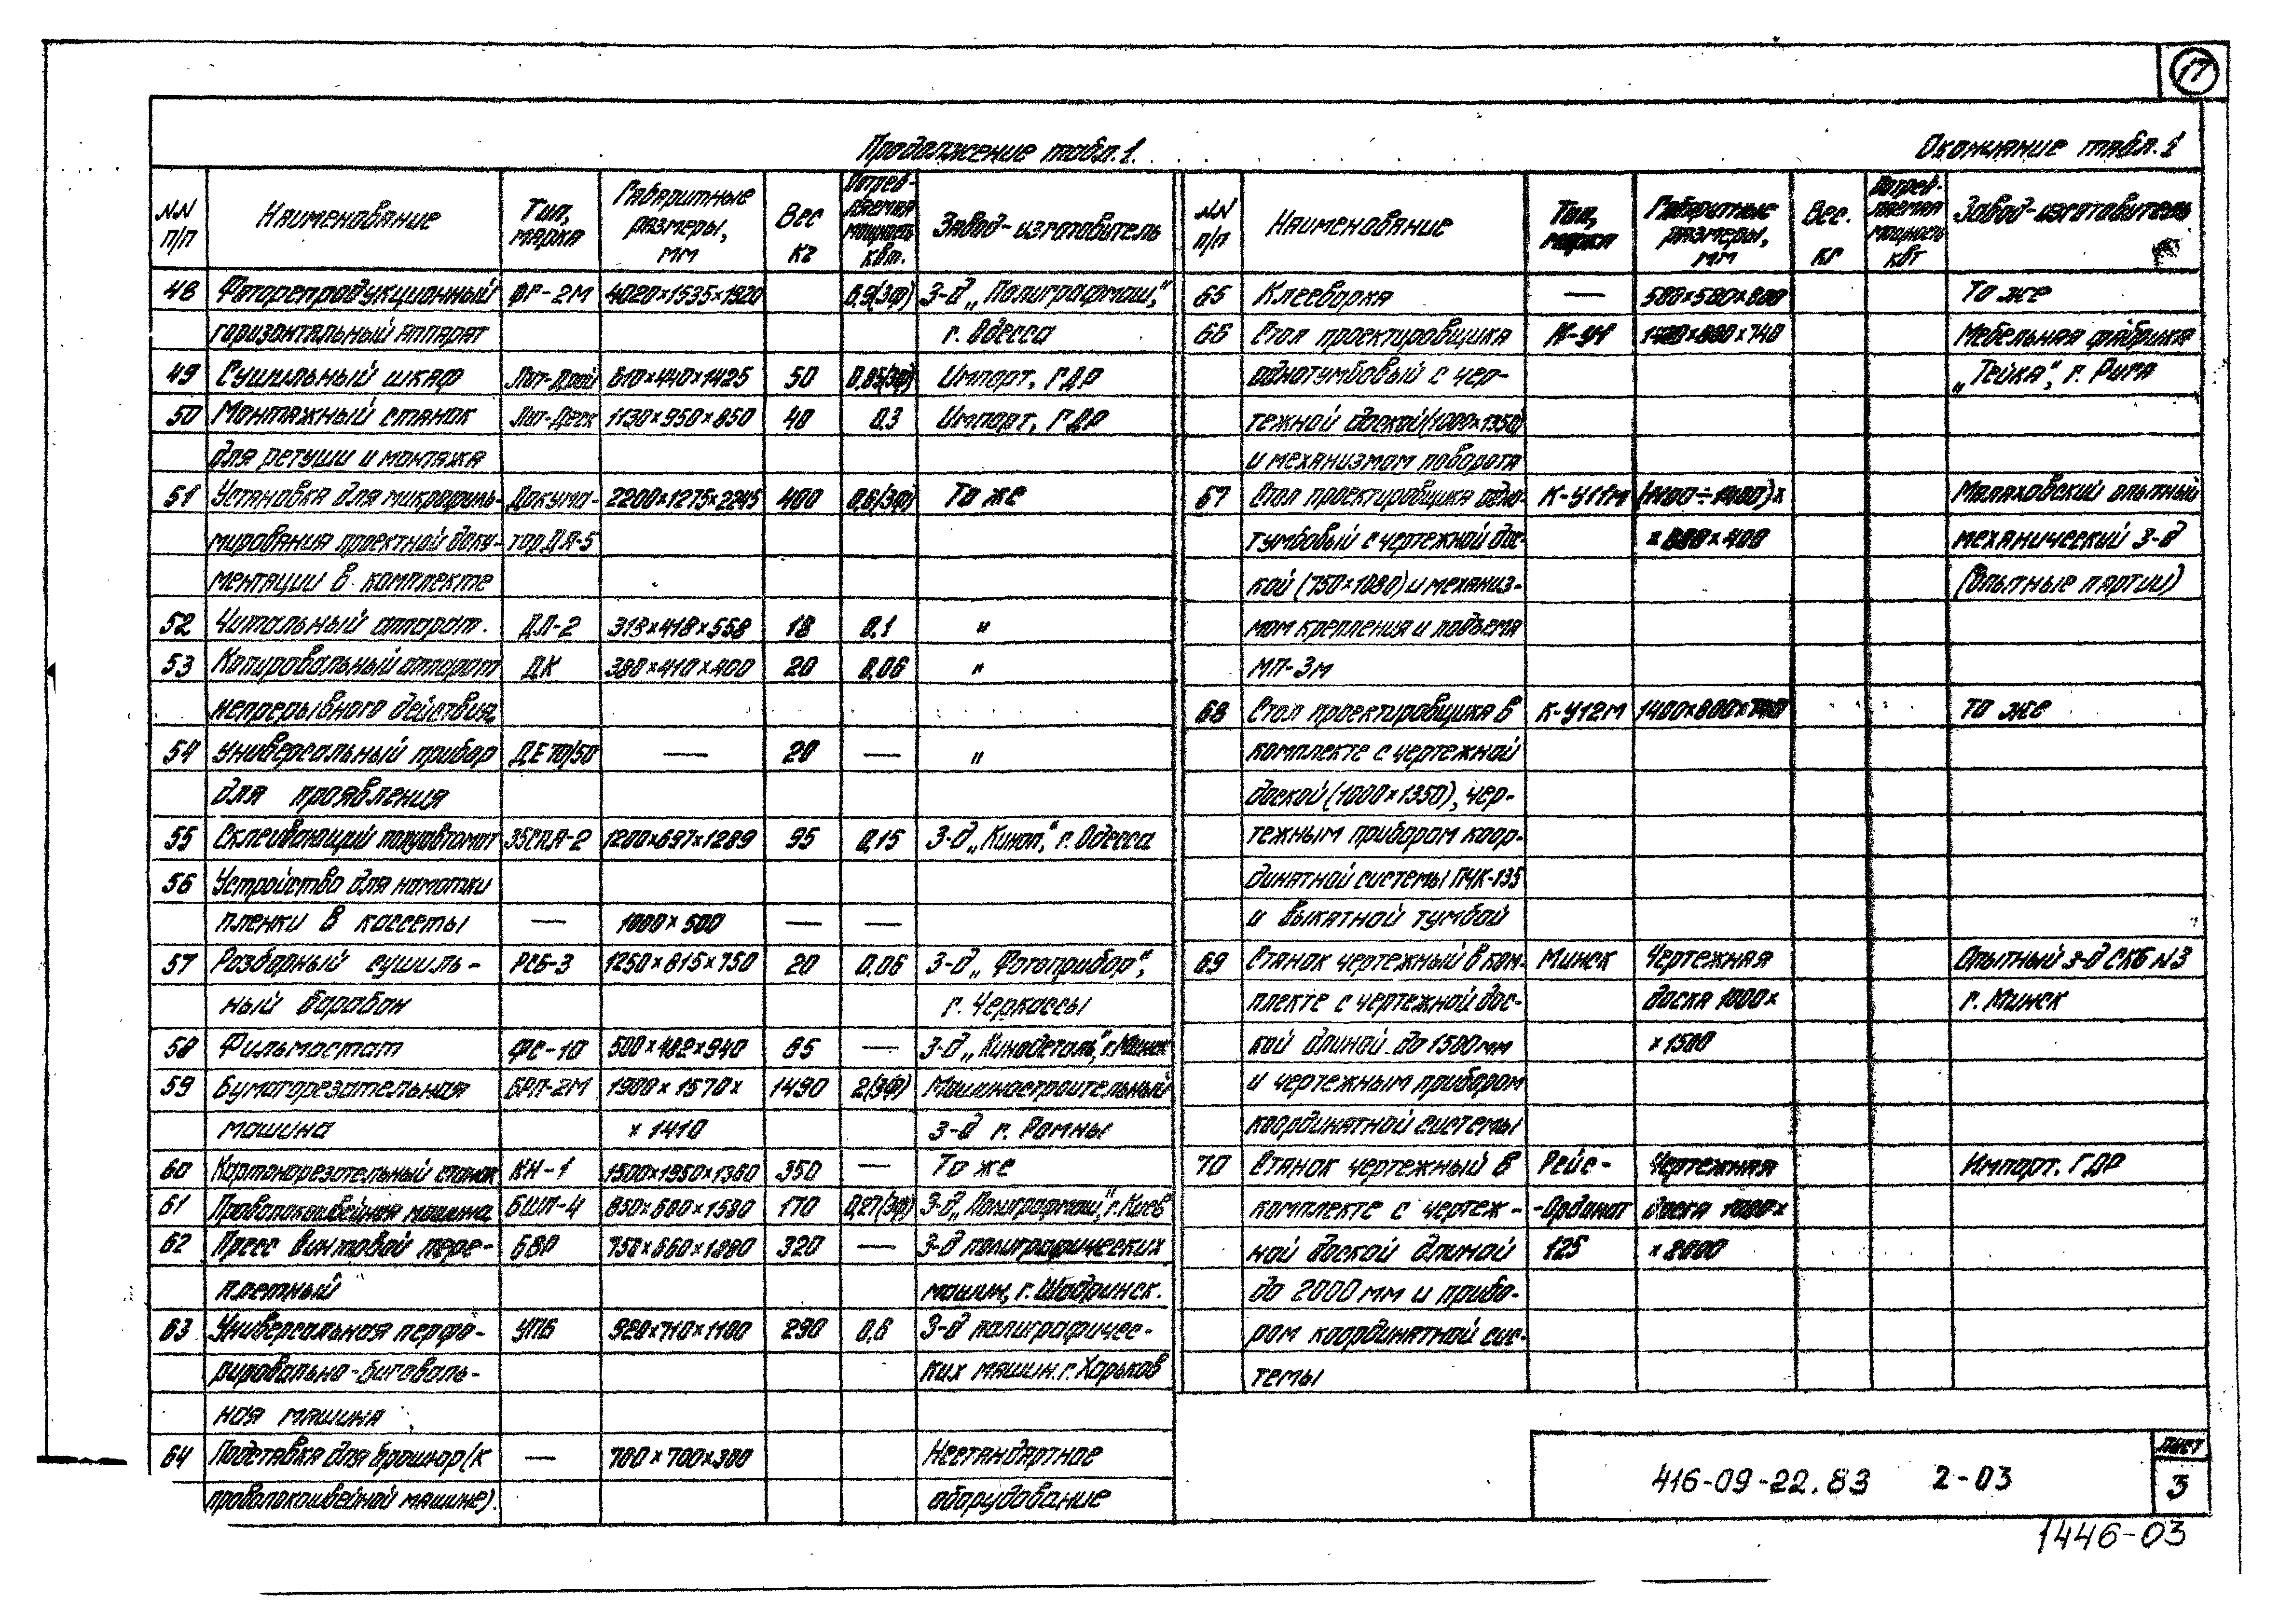 17
Продолжение табл. 1.
NN п/п Наименование Тип, марка Габаритные размеры, мм Вес кг Потребляемая мощность квт. Завод-изготовитель
48 Фоторепродукционный ФГ-2М 4020×1535×1920 6,9(3ф) З-д „Полиграфмаш",
горизонтальный аппарат г. Одесса
49 Сушильный шкаф 810×440×1425 50 0,85(3ф) Импорт, ГДР
50 Монтажный станок 1130×950×850 40 0,3 Импорт, ГДР
для ретуши и монтажа
51 Установка для микрофиль- Докума- 2200×1275×2245 400 0,6(3ф) То же
мирования проектной доку- тор ДА-5
ментации в комплекте
52 Читальный аппарат. ДЛ-2 313×418×558 18 0,1 "
53 Копировальный аппарат ДК 380×410×400 20 0,06 "
непрерывного действия
54 Универсальный прибор ДЕ 70/50 — 20 — "
для проявления
55 Склеивающий полуавтомат 35СПА-2 1200×697×1289 95 0,15 З-д „Кинап", г. Одесса
56 Устройство для намотки
пленки в кассеты — 1000×500 — —
57 Разборный сушиль- РСБ-3 1250×815×750 20 0,06 З-д „Фотоприбор",
ный барабан г. Черкассы
58 Фильмостат ФС-10 500×482×940 85 — З-д „Кинодеталь", г. Минск
59 Бумагорезательная БРП-2М 1900×1570× 1490 2(3ф) Машиностроительный
машина ×1410 З-д г. Ромны
60 Картонорезательный станок КН-1 1500×1950×1380 350 — То же
61 Проволокошвейная машина БШП-4 850×600×1580 170 0,27(3ф) З-д „Полиграфмаш", г. Киев
62 Пресс винтовой пере- БВР 750×860×1880 320 — З-д полиграфических
плетный машин, г. Шадринск.
63 Универсальная перфо- УПБ 920×710×1100 290 0,6 З-д полиграфичес-
рировально-биговаль- ких машин. г. Харьков
ная машина
64 Подставка для брошюр (к — 700×700×300 Нестандартное
проволокошвейной машине). оборудование
Окончание табл. 1
NN п/п Наименование Тип, марка Габаритные размеры, мм Вес. кг Потребляемая мощность квт Завод-изготовитель
65 Клееварка — 580×580×800 То же
66 Стол проектировщика К-У1 ×800×740 Мебельная фабрика
однотумбовый с чер- „Тейка", г. Рига
тежной доской (1000×1350)
и механизмом поворота
67 Стол проектировщика одно- К-У11М (1100÷1400)× Малаховский опытный
тумбовый с чертежной дос- ×800×400 механический З-д
кой (750×1080) и механиз- (Опытные партии)
мом крепления и подъема
МП-3м
68 Стол проектировщика в К-У12М 1400×800×700 То же
комплекте с чертежной
доской (1000×1350), чер-
тежным прибором коор-
динатной системы ПЧК-135
и выкатной тумбой
69 Станок чертежный в ком- Минск Чертежная Опытный з-д СКБ N3
плекте с чертежной дос- доска 1000× г. Минск
кой длиной до 1500мм ×1500
и чертежным прибором
координатной системы
70 Станок чертежный в Рейс- Чертежная Импорт. ГДР
комплекте с чертеж- -Ординат доска 1000×
ной доской длиной 125 ×2000
до 2000 мм и прибо-
ром координатной сис-
темы
416-09-22.83 2-03
лист
3
1446-03